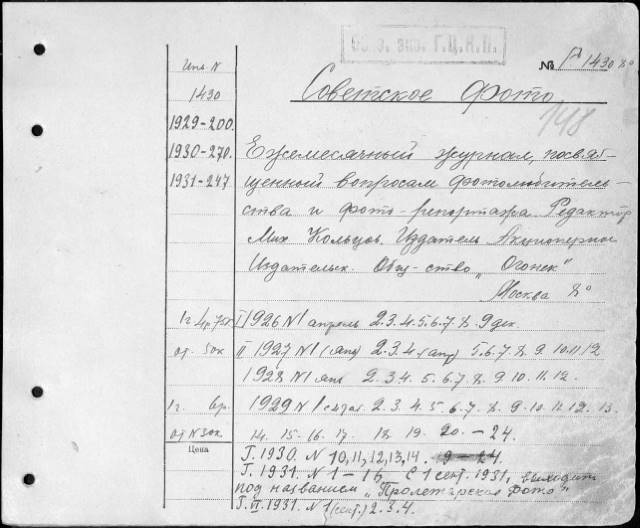 Обяз. экз. Г.Ц.К.П.
№ 1430 8°
Инв. N
1430
Советское Фото
148
1929-200.
1930-270.
1931-247
Ежемесячный журнал, посвящ-
щенный вопросам фотолюбитель-
ства и фото-репортажа. Редактор
Мих Кольцов. Издатель Акционерное
Издательск. Общ-ство „Огонек"
Москва 8°
1 г. 4р. 75к. I 1926 N 1 апрель 2.3.4.5.6.7.8.9 дек.
от. 50к II 1927 N 1 (янв) 2.3.4 (апр) 5.6.7.8.9.10.11.12
1928 N 1 янв 2.3.4.5.6.7.8.9.10.11.12.
1 г. 6р. 1929 N 1 2.3.4.5.6.7.8.9.10.11.12.13.
от N 30к. 14. 15-16. 17. 18. 19. 20. - 24.
Цена
Г. 1930. N 10, 11, 12, 13, 14. 19-24.
Г. 1931. N 1-16, С 1 сент. 1931, выходит
под названием „Пролетарское фото"
Г. VI. 1931. N 1 (сент.) 2.3.4.